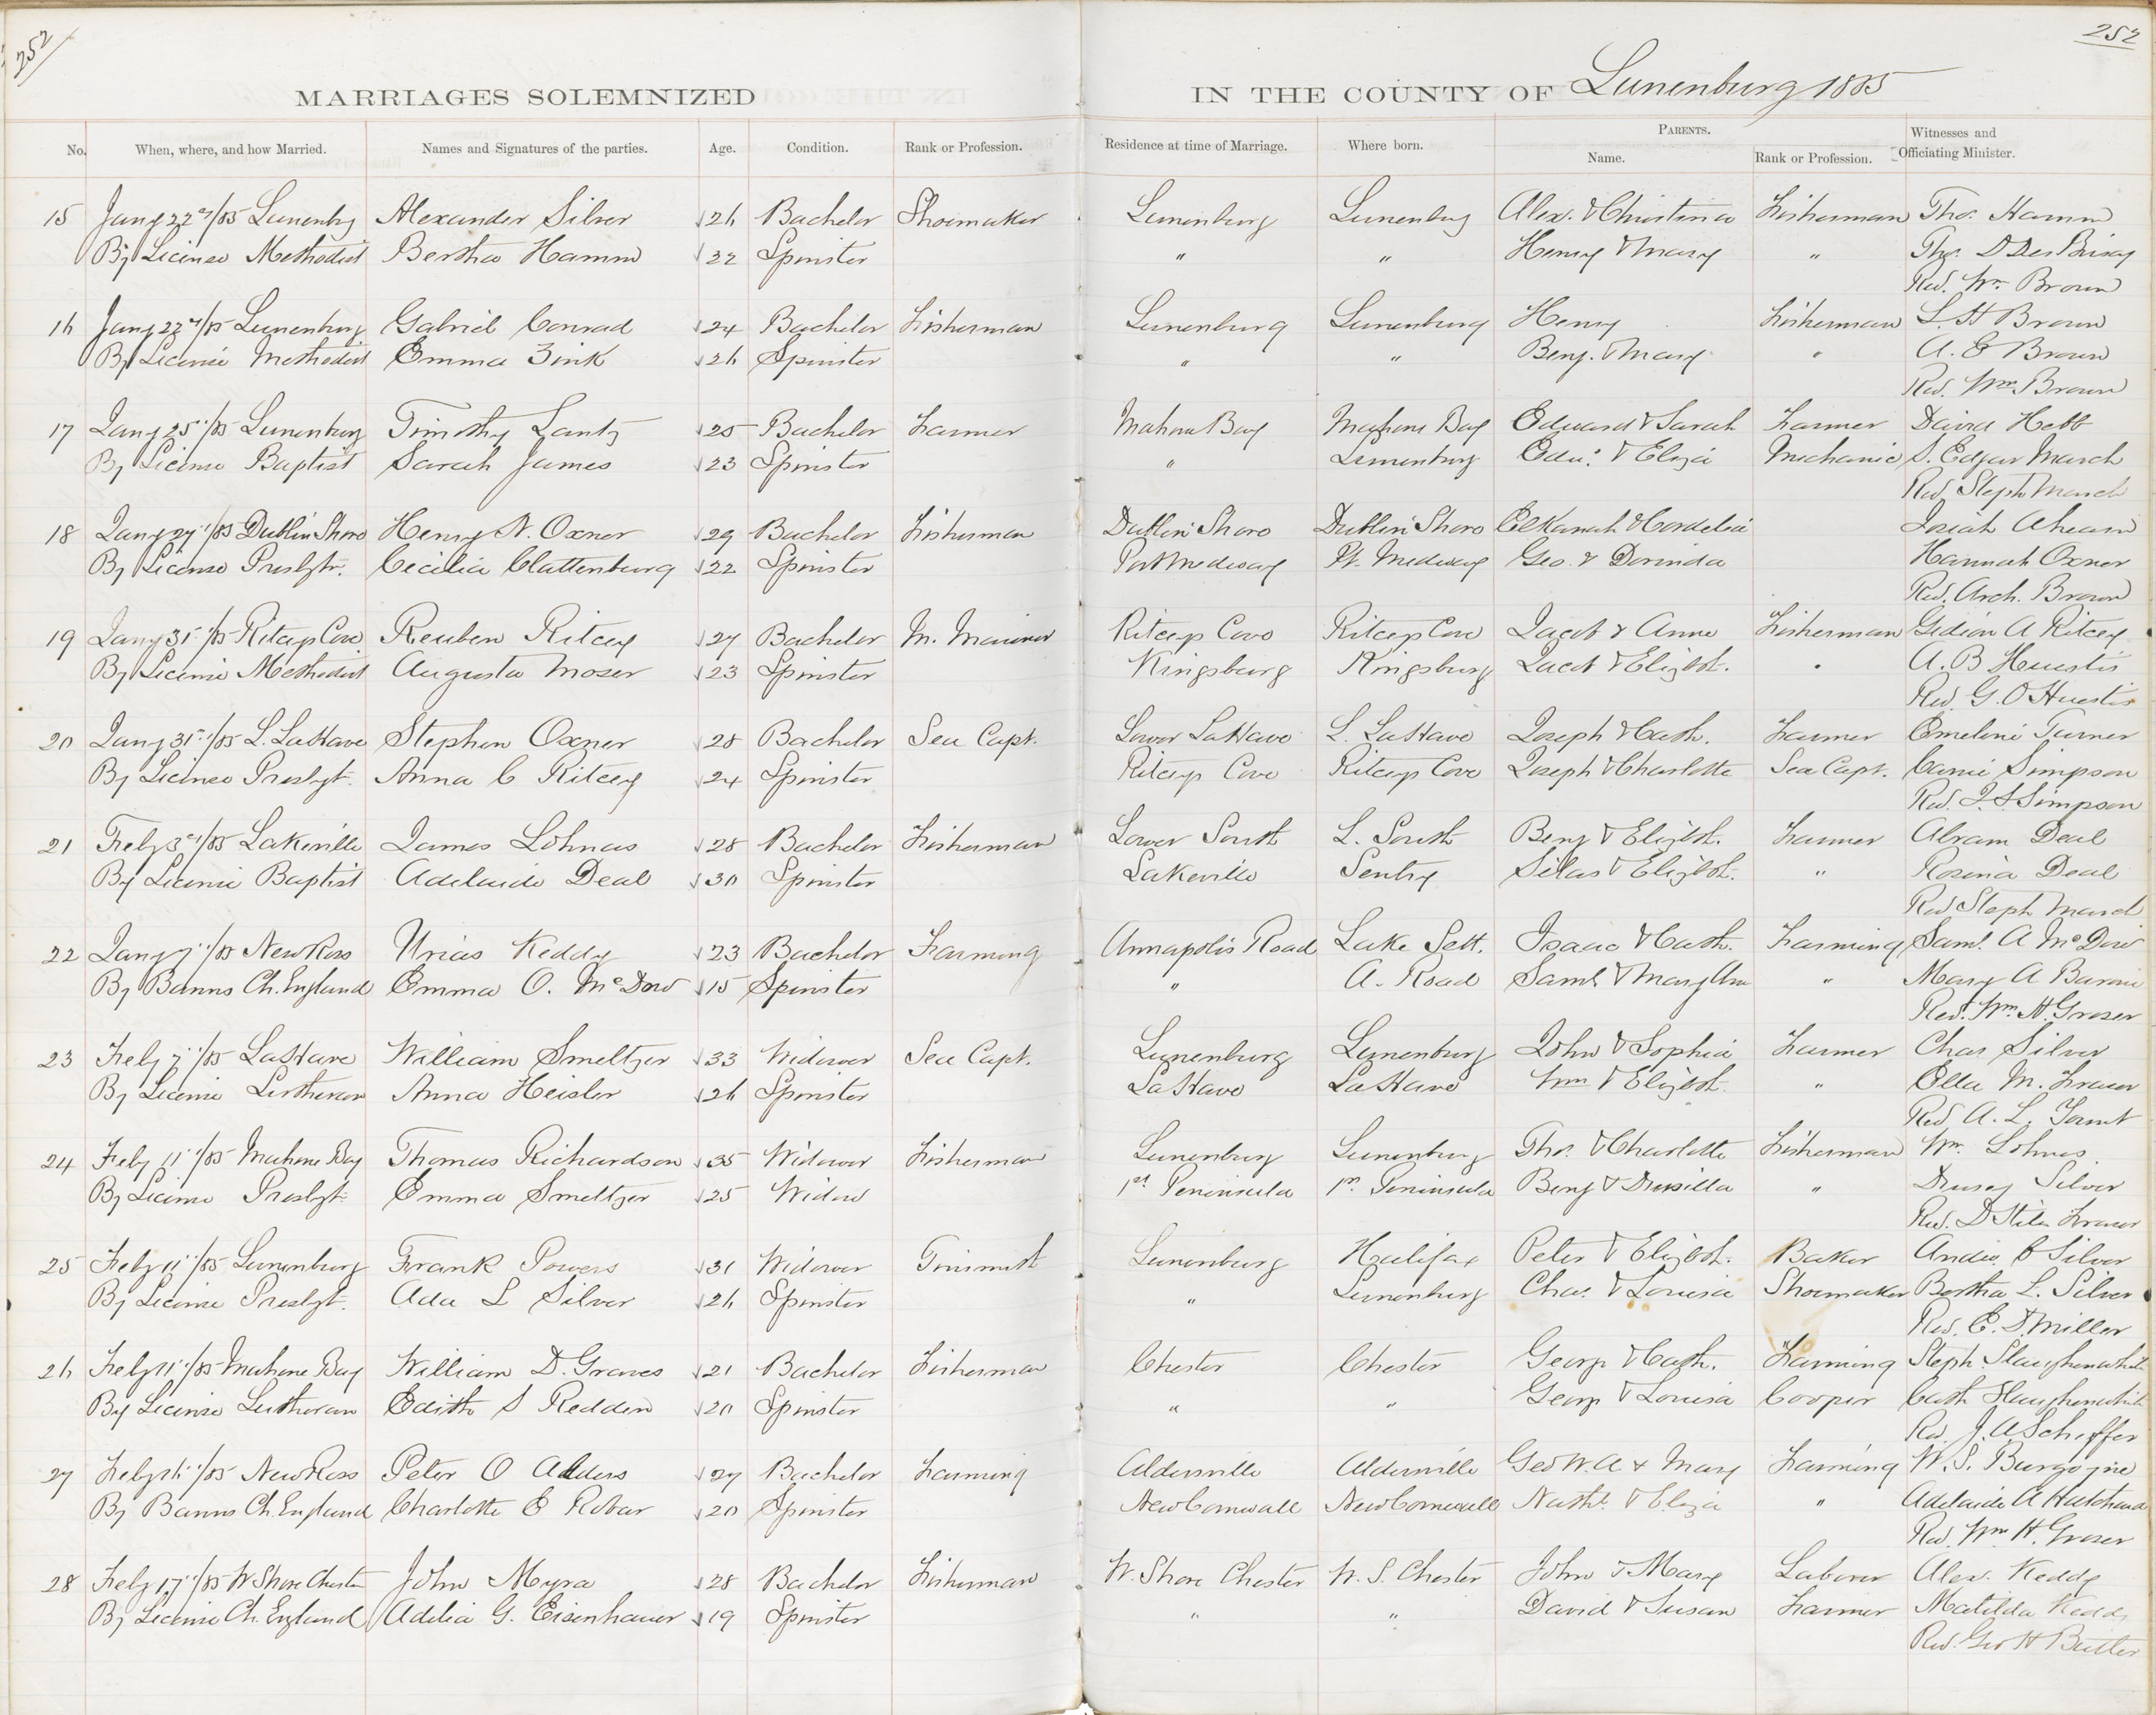 252
252
MARRIAGES SOLEMNIZED IN THE COUNTY OF Lunenburg 1885
No. When, where, and how Married. Names and Signatures of the parties. Age. Condition. Rank or Profession. Residence at time of Marriage. Where born. PARENTS. Name. Rank or Profession. Witnesses and Officiating Minister.
15 Jany 22nd/85 Lunenbg Alexander Silver 26 Bachelor Shoemaker Lunenburg Lunenburg Alex. & Christina Fisherman Thos. Hamm
By License Methodist Bertha Hamm 22 Spinster " " Henry & Mary " Thos. D DesBrisay
Rev. Wm Brown
16 Jany 22nd/85 Lunenburg Gabriel Conrad 24 Bachelor Fisherman Lunenburg Lunenburg Henry Fisherman L. H Brown
By License Methodist Emma Zink 26 Spinster " " Benj. & Mary " A. E Brown
Rev. Wm Brown
17 Jany 25"/85 Lunenburg Timothy Lantz 25 Bachelor Farmer Mahone Bay Mahone Bay Edward & Sarah Farmer David Hebb
By License Baptist Sarah James 23 Spinster " Lunenburg Edw. & Eliza Mechanic S. Edgar March
Rev. Steph March
18 Jany 27"/85 Dublin Shore Henry N. Oxner 29 Bachelor Fisherman Dublin Shore Dublin Shore Elkanah & Cordelia Josiah Ahearn
By License Presbytr. Cecilia Clattenburg 22 Spinster Port Medway Pt. Medway Geo. & Dorinda Hannah Oxner
Rev. Arch. Brown
19 Jany 31"/85 Ritcey Cove Reuben Ritcey 27 Bachelor M. Mariner Ritcey Cove Ritcey Cove Jacob & Anne Fisherman Gideon A Ritcey
By License Methodist Augusta Moser 23 Spinster Kingsburg Kingsburg Jacob & Elizbth. " A. B Huestis
Rev. G. O Huestis
20 Jany 31"/85 L. LaHave Stephen Oxner 28 Bachelor Sea Capt. Lower LaHave L. LaHave Joseph & Cath. Farmer Emeline Turner
By License Presbyt. Anna C Ritcey 24 Spinster Ritcey Cove Ritcey Cove Joseph & Charlotte Sea Capt. Carrie Simpson
Rev. Simpson
21 Feby 3rd/85 Lakeville James Lohnas 28 Bachelor Fisherman Lower South L. South Benj & Elizbth. Farmer Abram Deal
By License Baptist Adelaide Deal 30 Spinster Lakeville Sentry Silas & Elizbth. " Rosina Deal
Rev Steph March
22 Jany 7"/85 New Ross Urias Keddy 23 Bachelor Farming Annapolis Road Lake Sett. Isaac & Cath. Farming Saml. A McDow
By Banns Ch. England Emma O. McDow 15 Spinster " A. Road Saml & Mary Ann " Mary A
Rev. Wm. H. Groser
23 Feby 7"/85 LaHave William Smeltzer 33 Widower Sea Capt. Lunenburg Lunenburg John & Sophia Farmer Chas Silver
By License Lutheran Anna Heisler 26 Spinster LaHave LaHave Wm & Elizbth. " Ella M. Fraser
Rev A. L. Yount
24 Feby 11"/85 Mahone Bay Thomas Richardson 35 Widower Fisherman Lunenburg Lunenburg Thos. & Charlotte Fisherman Wm. Lohnes
By License Presbyt. Emma Smeltzer 25 Widow 1st Peninsula 1st Peninsula Benj & Drusilla " Silver
Rev. D Stiles Fraser
25 Feby 11"/85 Lunenburg Frank Powers 31 Widower Tinsmith Lunenburg Halifax Peter & Elizbth. Baker Andw. C Silver
By License Presbyt. Ada L Silver 26 Spinster " Lunenburg Chas. & Louisa Shoemaker Bertha L. Silver
Rev. E. D. Miller
26 Feby 11"/85 Mahone Bay William D. Graves 21 Bachelor Fisherman Chester Chester George & Cath. Farming Steph. Slaughenwhite
By License Lutheran Edith S Redden 20 Spinster " " George & Louisa Cooper Cath Slaughenwhite
Rev. J. A Scheffer
27 Feby 16"/85 New Ross Peter O Alders 27 Bachelor Farming Aldersville Aldersville Geo W. A & Mary Farming W. S. Burgoyne
By Banns Ch. England Charlotte E Robar 20 Spinster New Cornwall New Cornwall Nathl. & Eliza " Adelaide A
Rev. Wm. H. Groser
28 Feby 17"/85 W Shore Chester John Myra 28 Bachelor Fisherman W. Shore Chester W. S. Chester John & Mary Laborer Alex. Keddy
By License Ch. England Adelia G. Eisenhauer 19 Spinster " " David & Susan Farmer Matilda Keddy
Rev. Geo H Butler